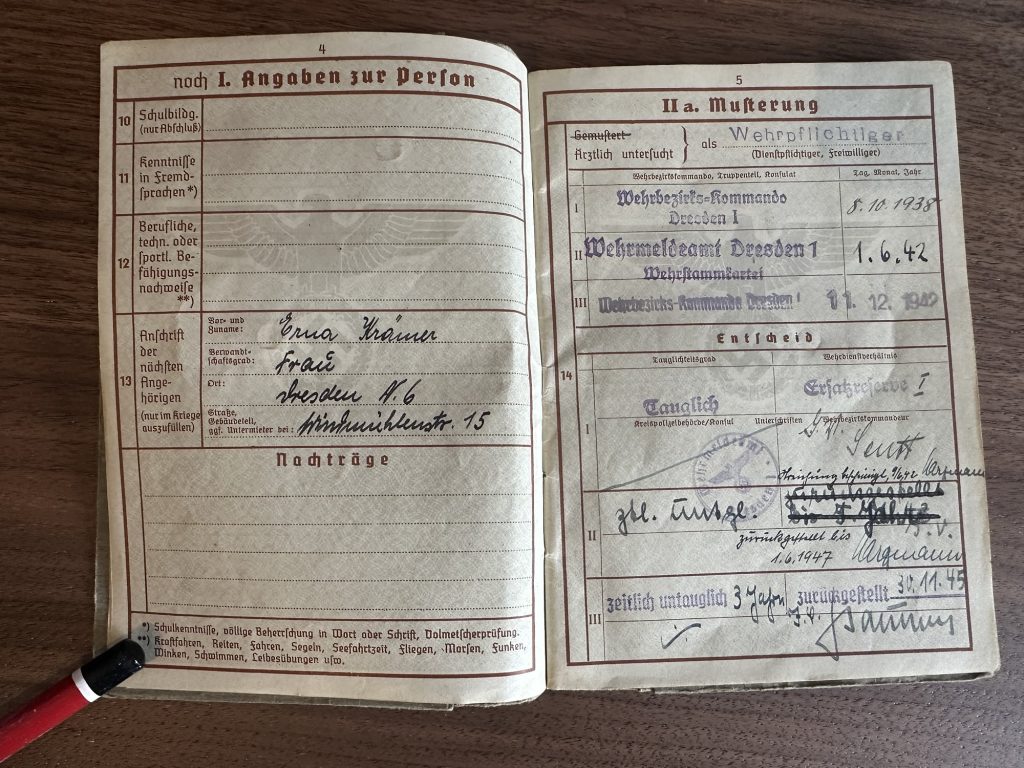 4
noch I. Angaben zur Person
10 Schulbildg.
(nur Abschluß)
11 Kenntnisse
in Fremd-
sprachen*)
12 Berufliche,
techn. oder
sportl. Be-
fähigungs-
nachweise
**)
13 Anschrift
der
nächsten
Ange-
hörigen
(nur im Kriege
auszufüllen)
Vor- und
Zuname: Erna Krämer
Verwandt-
schaftsgrad: Frau
Ort: Dresden N. 6
Straße,
Gebäudeteil,
ggf. Untermieter bei: Windmühlenstr. 15
Nachträge
*) Schulkenntnisse, völlige Beherrschung in Wort oder Schrift, Dolmetscherprüfung.
**) Kraftfahren, Reiten, Fahren, Segeln, Seefahrtzeit, Fliegen, Morsen, Funken,
Winken, Schwimmen, Leibesübungen usw.
5
II a. Musterung
Gemustert
Ärztlich untersucht } als Wehrpflichtiger
(Dienstpflichtiger, Freiwilliger)
Wehrbezirkskommando, Truppenteil, Konsulat Tag, Monat, Jahr
I Wehrbezirks-Kommando
Dresden I 8.10.1938
II Wehrmeldeamt Dresden 1 1.6.42
Wehrstammkartei
III Wehrbezirks-Kommando Dresden I 11. 12. 1942
Entscheid
14
Tauglichkeitsgrad Wehrdienstverhältnis
I Tauglich Ersatzreserve I
Kreispolizeibehörde/Konsul Unterschriften Wehrbezirkskommandeur
Wehrmeldeamt Dresden
Streichung bescheinigt 9/6.42
II ztl. untgl.
zurückgestellt bis
1.6.1947
III zeitlich untauglich 3 Jahre zurückgestellt 30.11.45